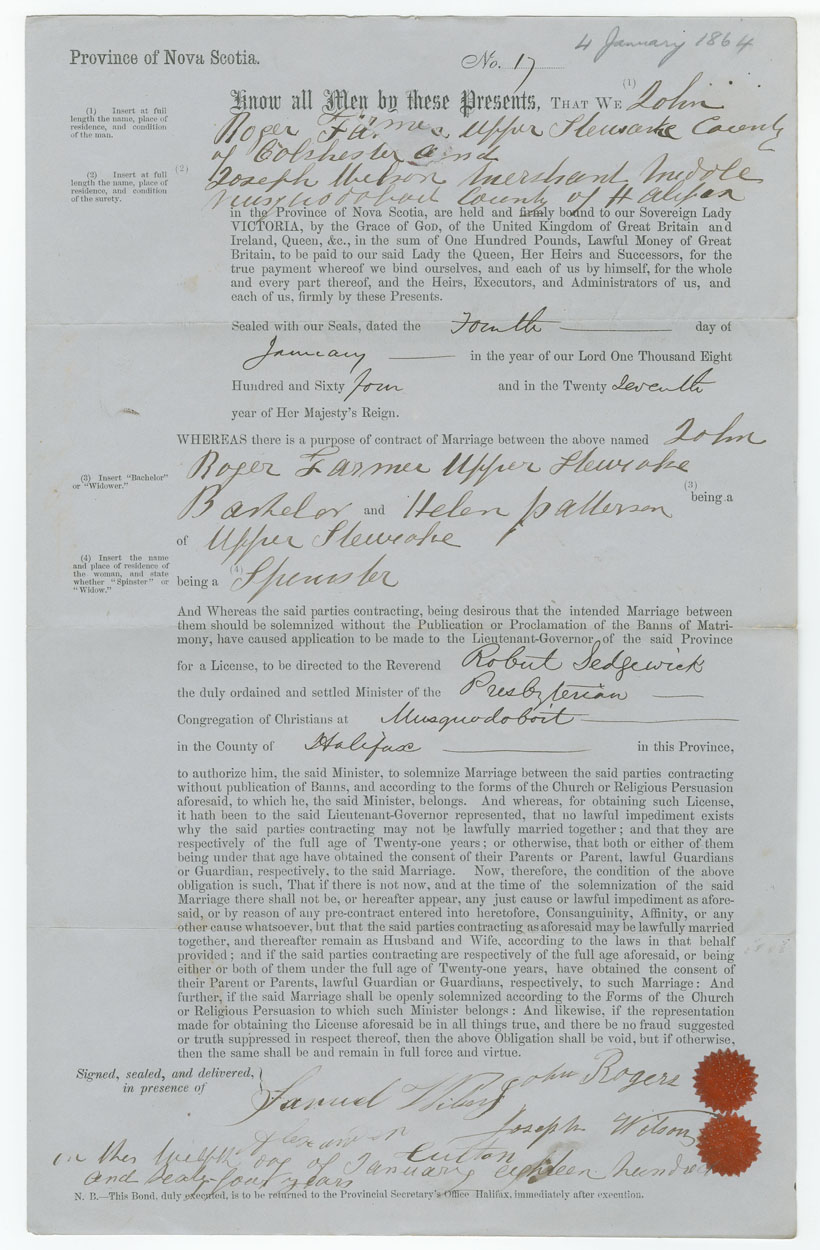 4 January 1864
Province of Nova Scotia.
No. 17
Know all Men by these Presents, THAT WE (1) John
(1) Insert at full length the name, place of residence, and condition of the man.
Roger Farmer Upper Stewiacke County
of Colchester and
(2) Insert at full length the name, place of residence, and condition of the surety.
(2) Joseph Wilson Merchant Middle
Musquodoboit County of Halifax
in the Province of Nova Scotia, are held and firmly bound to our Sovereign Lady
VICTORIA, by the Grace of God, of the United Kingdom of Great Britain and
Ireland, Queen, &c., in the sum of One Hundred Pounds, Lawful Money of Great
Britain, to be paid to our said Lady the Queen, Her Heirs and Successors, for the
true payment whereof we bind ourselves, and each of us by himself, for the whole
and every part thereof, and the Heirs, Executors, and Administrators of us, and
each of us, firmly by these Presents.
Sealed with our Seals, dated the Fourth day of
January in the year of our Lord One Thousand Eight
Hundred and Sixty four and in the Twenty Seventh
year of Her Majesty's Reign.
WHEREAS there is a purpose of contract of Marriage between the above named John
Roger Farmer Upper Stewiacke
(3) Insert "Bachelor" or "Widower."
(3) being a
Bachelor and Helen Patterson
of Upper Stewiacke
(4) Insert the name and place of residence of the woman, and state whether "Spinster" or "Widow."
being a (4) Spinster
And Whereas the said parties contracting, being desirous that the intended Marriage between
them should be solemnized without the Publication or Proclamation of the Banns of Matri-
mony, have caused application to be made to the Lieutenant-Governor of the said Province
for a License, to be directed to the Reverend Robert Sedgewick
the duly ordained and settled Minister of the Presbyterian
Congregation of Christians at Musquodoboit
in the County of Halifax in this Province,
to authorize him, the said Minister, to solemnize Marriage between the said parties contracting
without publication of Banns, and according to the forms of the Church or Religious Persuasion
aforesaid, to which he, the said Minister, belongs. And whereas, for obtaining such License,
it hath been to the said Lieutenant-Governor represented, that no lawful impediment exists
why the said parties contracting may not be lawfully married together; and that they are
respectively of the full age of Twenty-one years; or otherwise, that both or either of them
being under that age have obtained the consent of their Parents or Parent, lawful Guardians
or Guardian, respectively, to the said Marriage. Now, therefore, the condition of the above
obligation is such, That if there is not now, and at the time of the solemnization of the said
Marriage there shall not be, or hereafter appear, any just cause or lawful impediment as afore-
said, or by reason of any pre-contract entered into heretofore, Consanguinity, Affinity, or any
other cause whatsoever, but that the said parties contracting as aforesaid may be lawfully married
together, and thereafter remain as Husband and Wife, according to the laws in that behalf
provided; and if the said parties contracting are respectively of the full age aforesaid, or being
either or both of them under the full age of Twenty-one years, have obtained the consent of
their Parent or Parents, lawful Guardian or Guardians, respectively, to such Marriage: And
further, if the said Marriage shall be openly solemnized according to the Forms of the Church
or Religious Persuasion to which such Minister belongs: And likewise, if the representation
made for obtaining the License aforesaid be in all things true, and there be no fraud suggested
or truth suppressed in respect thereof, then the above Obligation shall be void, but if otherwise,
then the same shall be and remain in full force and virtue.
Signed, sealed, and delivered, in presence of
John Rogers
Samuel
Joseph Wilson
day of January eighteen hundred
and years
N. B.—This Bond, duly executed, is to be returned to the Provincial Secretary's Office Halifax, immediately after execution.